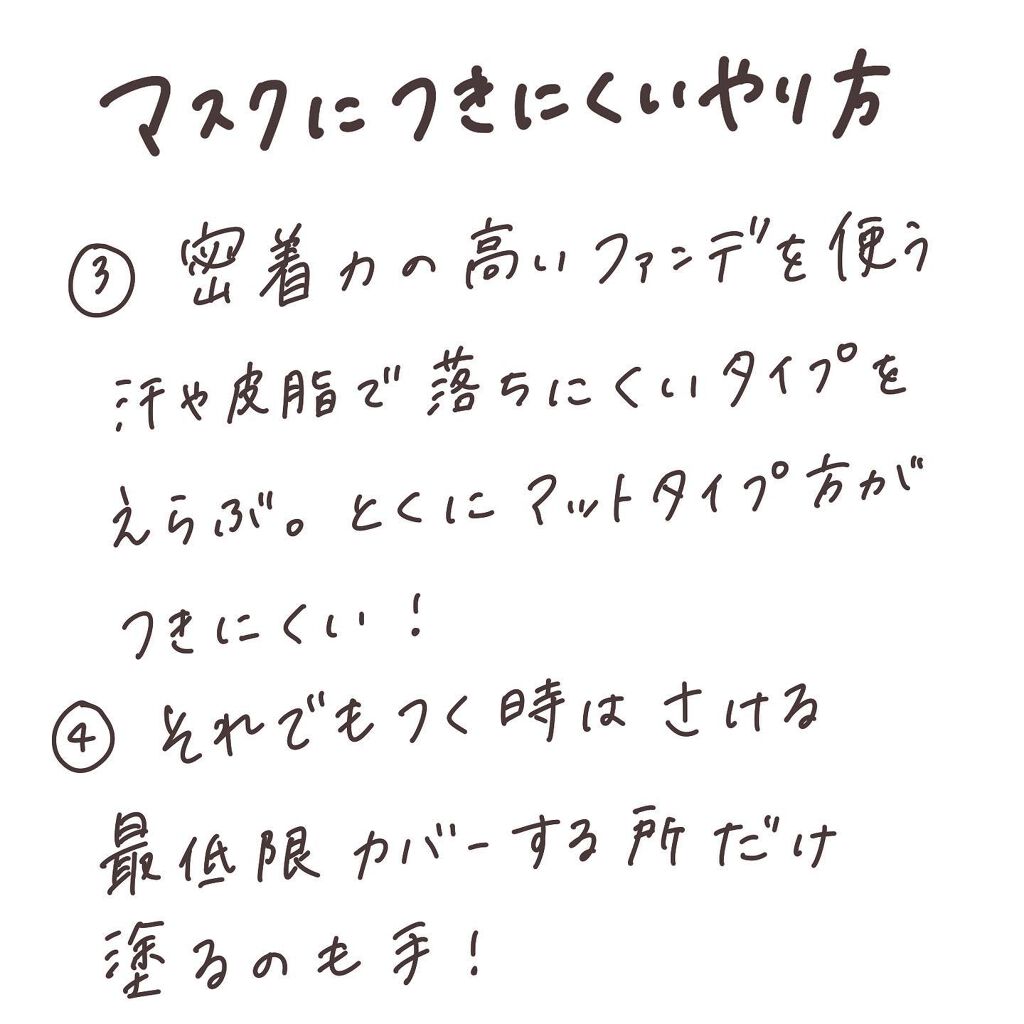 マスクにつきにくいやり方
③ 密着力の高いファンデを使う
汗や皮脂で落ちにくいタイプを
えらぶ。とくにマットタイプ方が
つきにくい!
④ それでもつく時はさける
最低限カバーする所だけ
塗るのも手!